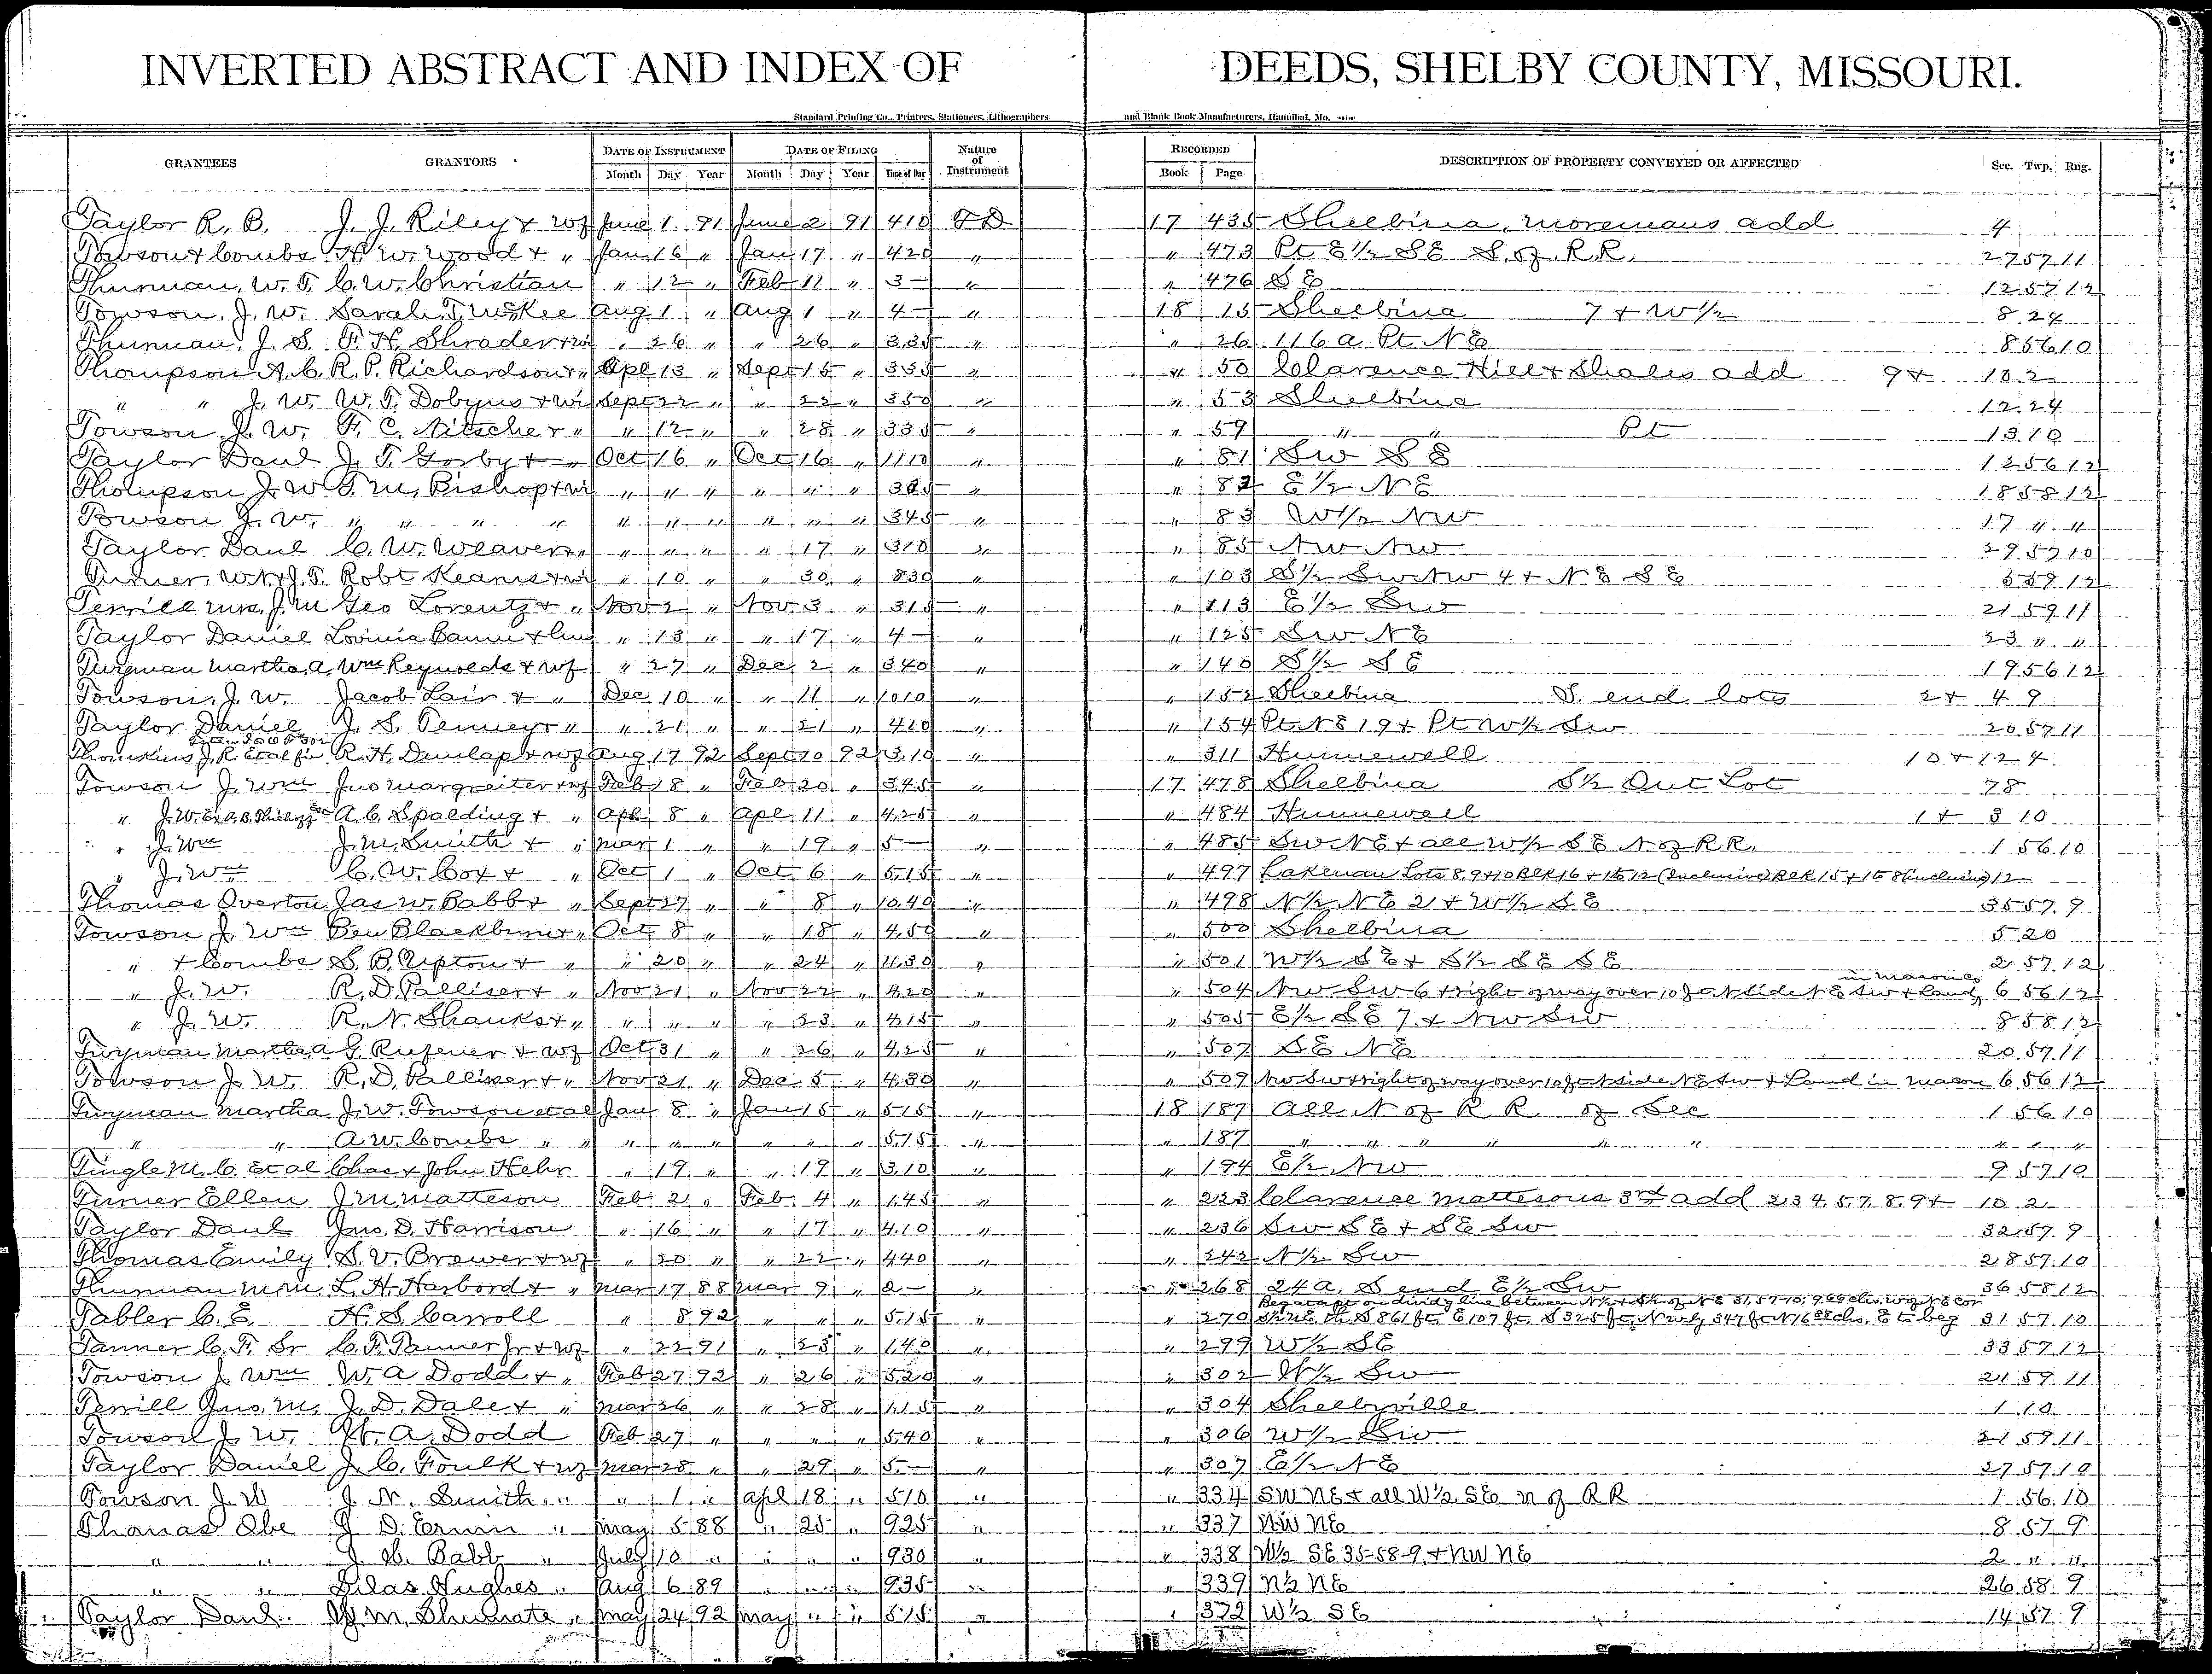 INVERTED ABSTRACT AND INDEX OF DEEDS, SHELBY COUNTY, MISSOURI.
Standard Printing Co., Printers, Stationers, Lithographers and Blank Book Manufacturers, Hannibal, Mo.
GRANTEES GRANTORS DATE OF INSTRUMENT DATE OF FILING Nature of Instrument RECORDED DESCRIPTION OF PROPERTY CONVEYED OR AFFECTED Sec. Twp. Rng.
Month Day Year Month Day Year Time of Day Book Page
Taylor R. B. J. J. Riley & wf June 1 91 June 2 91 410 17 435 Shelbina, Moremans add 4
Towson & Combs H. W. Wood & " Jan 16 " Jan 17 " 420 " " 473 Pt E 1/2 SE S. of R.R. 27 57 11
Thurman, W. T. C. W. Christian " 12 " Feb 11 " 3 - " " 476 SE 12 57 12
Towson, J. W. Sarah T. McKee Aug 1 " Aug 1 " 4 - " 18 15 Shelbina 7 & W 1/2 8 24
Thurman, J. S. F. H. Shrader & wf " 26 " " 26 " 335 " " 26 116 a Pt NE 8 56 10
Thompson A. C. R. P. Richardson & " Apl 13 " Sept 15 " 335 " " 50 Clarence Hill & Shales add 9 & 10 2
" " J. W. W. T. Dobyns & wf Sept 22 " " 22 " 350 " " 53 Shelbina 12 24
Towson J. W. F. C. Nitscher & " " 12 " " 28 " 335 " " 59 " " Pt 13 10
Taylor Danl J. T. Gosby & " Oct 16 " Oct 16 " 1110 " " 81 SW SE 12 56 12
Thompson J. W. T. M. Bishop & wf " " " " " " 345 " " 82 E 1/2 NE 18 58 12
Towson J. W. " " " " " " " " " " 345 " " 83 W 1/2 NW 17 " "
Taylor Danl C. W. Weaver & " " " " " 17 " 310 " " 85 NW NW 29 57 10
Turner, W. N. & J. T. Robt Kearns & wf " 10 " " 30 " 830 " " 103 S 1/2 SW NW 4 & NE SE 5 59 12
Terrill Mrs. J. M Geo Lorentz & " Nov 2 " Nov 3 " 315 " " 113 E 1/2 SW 21 59 11
Taylor Daniel Lovinia & hus " 13 " " 17 " 4 - " " 125 SW NE 23 " "
Martha, A. Wm Reynolds & wf " 27 " Dec 2 " 340 " " 140 S 1/2 SE 19 56 12
Towson, J. W. Jacob Lair & " Dec 10 " " 11 " 1010 " " 152 Shelbina S. end lots 2 & 4 9
Taylor Daniel J. S. Penney & " " 21 " " 21 " 410 " " 154 Pt NE 19 & Pt W 1/2 SW 20 57 11
R. H. Dunlap & wf Aug 17 92 Sept 10 92 310 " " 311 Hunnewell 10 & 12 4
Towson J. Wm Jno Margreiter & wf Feb 18 " Feb 20 " 345 " 17 478 Shelbina S 1/2 Out Lot 78
" J. W. A. C. Spalding & " Apl 8 " Apl 11 " 425 " " 484 Hunnewell 1 & 3 10
" J. Wm J. M. Smith & " Mar 1 " " 19 " 5 - " " 485 SW NE & all W 1/2 SE N of R.R. 1 56 10
" J. Wm C. W. Cox & " Oct 1 " Oct 6 " 515 " " 497 Lakenan Lots 8, 9 & 10 Blk 16 & 1 to 12 (Inclusive) Blk 15 & 1 to 8 (Inclusive) 12
Thomas Overton Jas W. Babb & " Sept 27 " " 8 " 1040 " " 498 N 1/2 NE 2 & W 1/2 SE 35 57 9
Towson J. Wm Ben Blackburn & " Oct 8 " " 18 " 450 " " 500 Shelbina 5 20
" & Combs S. B. Tipton & " " 20 " " 24 " 1130 " " 501 W 1/2 SE & S 1/2 SE SE 2 57 12
" J. W. R. D. Palliser & " Nov 21 " Nov 22 " 420 " " 504 NW SW 6 & right of way over 10 ft N side NE SW & land in Macon 6 56 12
" J. W. R. N. Shanks & " " " " " 23 " 415 " " 505 E 1/2 SE 7 & NW SW 8 58 12
Twyman Martha A G. Rufener & wf Oct 31 " " 26 " 425 " " 507 SE NE 20 57 11
Towson J. W. R. D. Palliser & " Nov 21 " Dec 5 " 430 " " 509 NW SW & right of way over 10 ft N side NE SW & Land in Macon 6 56 12
Twyman Martha J. W. Towson et al Jan 8 " Jan 15 " 515 " 18 187 All N of R R of Sec 1 56 10
" " A. W. Combs " " " " " " " " 515 " " 187 " " " " " " " "
Tingle M. C. et al Chas & John Hehr " 19 " " 19 " 310 " " 194 E 1/2 NW 9 57 10
Turner Ellen J. M. Matteson Feb 2 " Feb 4 " 145 " " 223 Clarence Mattesons 3rd add 2 3 4, 5, 7, 8, 9 & 10 2
Taylor Danl Jno. D. Harrison " 16 " " 17 " 410 " " 236 SW SE & SE SW 32 57 9
Thomas Emily S. V. Brewer & wf " 20 " " 22 " 440 " " 242 N 1/2 SW 28 57 10
Thurman M. M. L. H. Harbord & " Mar 17 88 Mar 9 " 2 - " " 268 24 A. S end E 1/2 SW 36 58 12
Tabler C. E. H. S. Carroll " 8 92 " " " 515 " " 270 Beg at a pt on dividg line between N 1/2 & S 1/2 of NE 31, 57-10, E to beg 31 57 10
Tanner C. F. Sr C. F. Tanner Jr & wf " 22 91 " 23 " 140 " " 299 W 1/2 SE 33 57 12
Towson J. Wm W. A. Dodd & " Feb 27 92 " 26 " 520 " " 302 W 1/2 SW 21 59 11
Terrill Jno. M. J. D. Dale & " Mar 26 " " 28 " 115 " " 304 Shelbyville 1 10
Towson J. W. W. A. Dodd Feb 27 " " " " 540 " " 306 W 1/2 SW 21 59 11
Taylor Daniel J. C. Foulk & wf Mar 28 " " 29 " 5 - " " 307 E 1/2 NE 27 57 10
Towson J. W J. N. Smith " " 1 " Apl 18 " 510 " " 334 SW NE & all W 1/2 SE N of RR 1 56 10
Thomas Obe J. D. Erwin " May 5 88 " 25 " 925 " " 337 NW NE 8 57 9
" " J. W. Babb " July 10 " " " " 930 " 338 W 1/2 SE 35-58-9 & NW NE 2 " "
" " Silas Hughes " Aug 6 89 " " " 935 " " 339 N 1/2 NE 26 58 9
Taylor Danl. W. M. Shumate " May 24 92 May " " 515 " " 372 W 1/2 SE 14 57 9